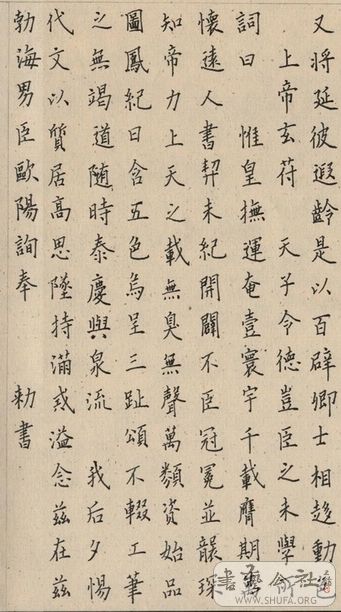 又將延彼遐齡是以百辟卿士相趍動色
上帝玄符 天子令德豈臣之末學
詞曰 惟皇撫運奄壹寰宇千載膺期萬
懷遠人書契未紀開闢不臣冠冕並襲琛
知帝力上天之載無臭無聲萬類資始品
圖鳳紀日含五色烏呈三趾頌不輟工筆
之無竭道隨時泰慶與泉流 我后夕惕
代文以質居高思墜持滿戒溢念茲在茲
勃海男臣歐陽詢奉 勑書
WWW.SHUFA.ORG